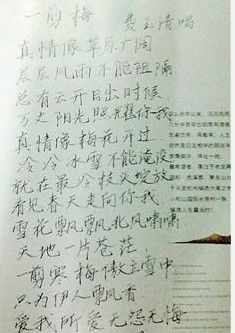 一剪梅
费玉清唱
真情像草原广阔
层层风雨不能阻隔
总有云开日出时候
万丈阳光照耀你我
真情像梅花开过
冷冷冰雪不能淹没
就在最冷枝头绽放
看见春天走向你我
雪花飘飘北风啸啸
天地一片苍茫
一剪寒梅傲立雪中
只为伊人飘香
爱我所爱无怨无悔